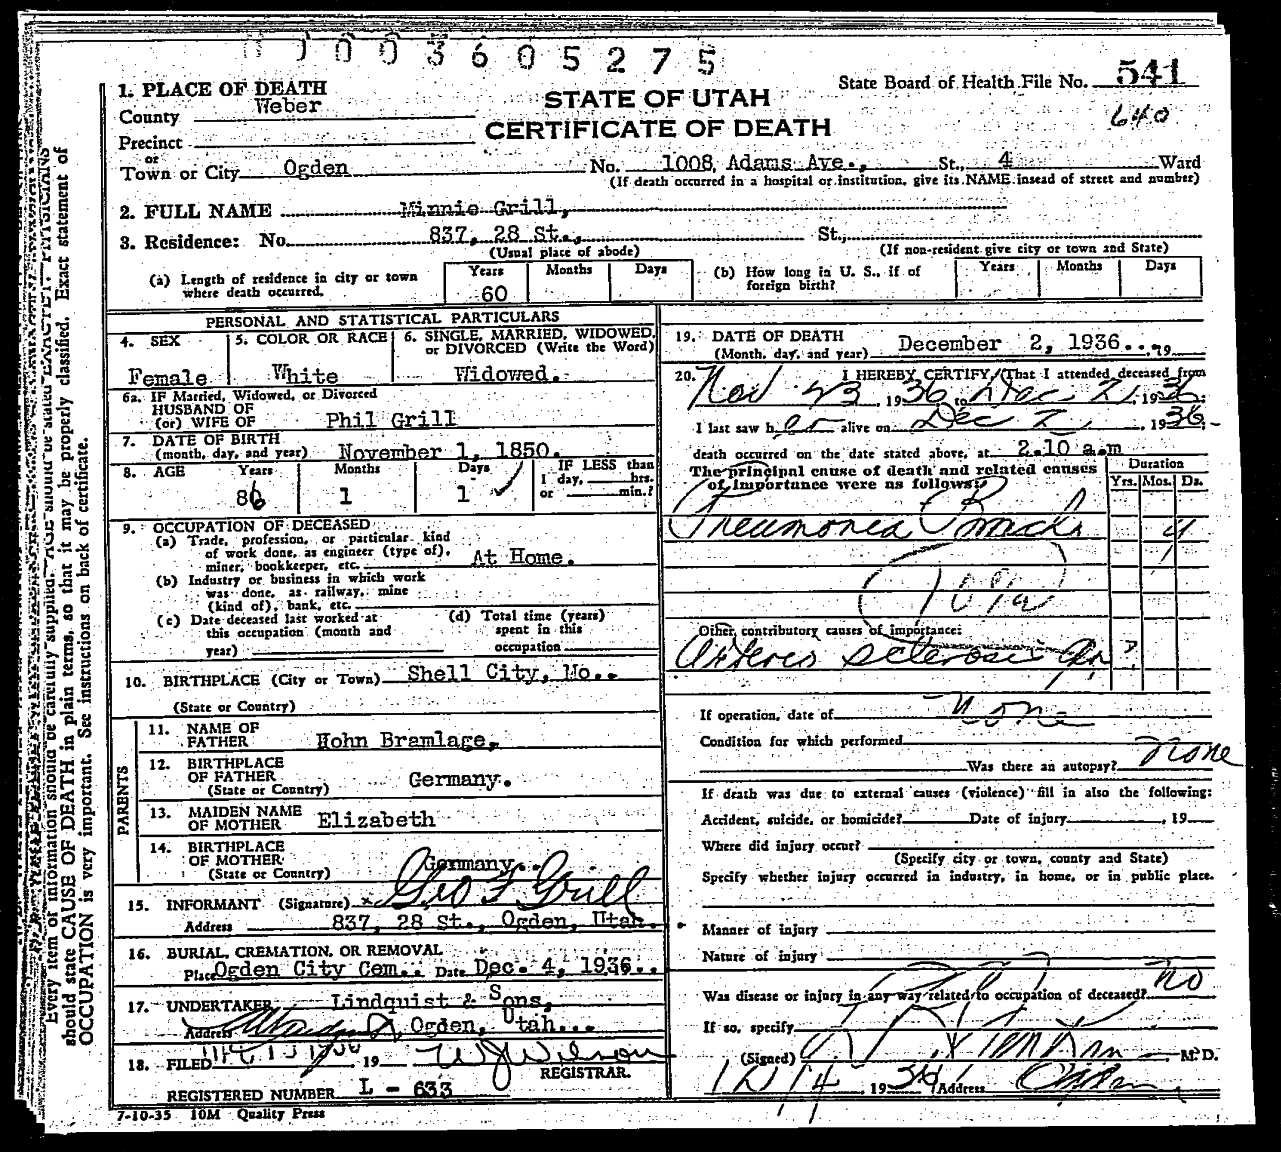 0003605275
State Board of Health File No. 541
640
STATE OF UTAH
CERTIFICATE OF DEATH
1. PLACE OF DEATH
County Weber
Precinct
or
Town or City Ogden No. 1008, Adams Ave., St., 4 Ward
(If death occurred in a hospital or institution, give its NAME insead of street and number)
2. FULL NAME Minnie Grill,
3. Residence: No. 837, 28 St., St.,
(Usual place of abode) (If non-resident give city or town and State)
(a) Length of residence in city or town where death occurred. Years 60 Months Days
(b) How long in U. S., if of foreign birth? Years Months Days
PERSONAL AND STATISTICAL PARTICULARS
4. SEX Female
5. COLOR OR RACE White
6. SINGLE, MARRIED, WIDOWED, or DIVORCED (Write the Word) Widowed.
6a. IF Married, Widowed, or Divorced
HUSBAND OF
(or) WIFE OF Phil Grill
7. DATE OF BIRTH
(month, day, and year) November 1, 1850.
8. AGE Years 86 Months 1 Days 1 IF LESS than 1 day, hrs. or min.?
9. OCCUPATION OF DECEASED
(a) Trade, profession, or particular kind
of work done, as engineer (type of),
miner, bookkeeper, etc. At Home.
(b) Industry or business in which work
was done, as railway, mine
(kind of), bank, etc.
(c) Date deceased last worked at
this occupation (month and
year)
(d) Total time (years)
spent in this
occupation
10. BIRTHPLACE (City or Town) Shell City, Mo..
(State or Country)
PARENTS
11. NAME OF FATHER Hohn Bramlage,
12. BIRTHPLACE OF FATHER
(State or Country) Germany.
13. MAIDEN NAME OF MOTHER Elizabeth
14. BIRTHPLACE OF MOTHER
(State or Country) Germany..
15. INFORMANT (Signature) x Geo F Grill
Address 837, 28 St., Ogden, Utah.
16. BURIAL, CREMATION, OR REMOVAL
Place Ogden City Cem.. Date Dec. 4, 1936..
17. UNDERTAKER Lindquist & Sons,
Address Ogden, Utah...
18. FILED 19 W J Wilson
REGISTRAR.
REGISTERED NUMBER L - 633
7-10-35 10M Quality Press
19. DATE OF DEATH
(Month, day, and year) December 2, 1936..., 19
20. I HEREBY CERTIFY, (That I attended deceased from
Nov 23 1936 to Dec 2, 1936:
I last saw her alive on Dec 2, 1936.
death occurred on the date stated above, at 2.10 a.m
The principal cause of death and related causes
of importance were as follows:
Duration
Yrs. Mos. Ds.
Pneumonia Bronch. 4
(107a)
Other contributory causes of importance:
Arterio sclerosis ?
If operation, date of None
Condition for which performed
Was there an autopsy? None
If death was due to external causes (violence) fill in also the following:
Accident, suicide, or homicide? Date of injury , 19
Where did injury occur?
(Specify city or town, county and State)
Specify whether injury occurred in industry, in home, or in public place.
Manner of injury
Nature of injury
Was disease or injury in any way related to occupation of deceased? no
If so, specify
(Signed) M. D.
12/4 1936 Address Ogden
Every item of information should be carefully supplied. AGE should be stated EXACTLY. PHYSICIANS
should state CAUSE OF DEATH in plain terms, so that it may be properly classified. Exact statement of
OCCUPATION is very important. See instructions on back of certificate.